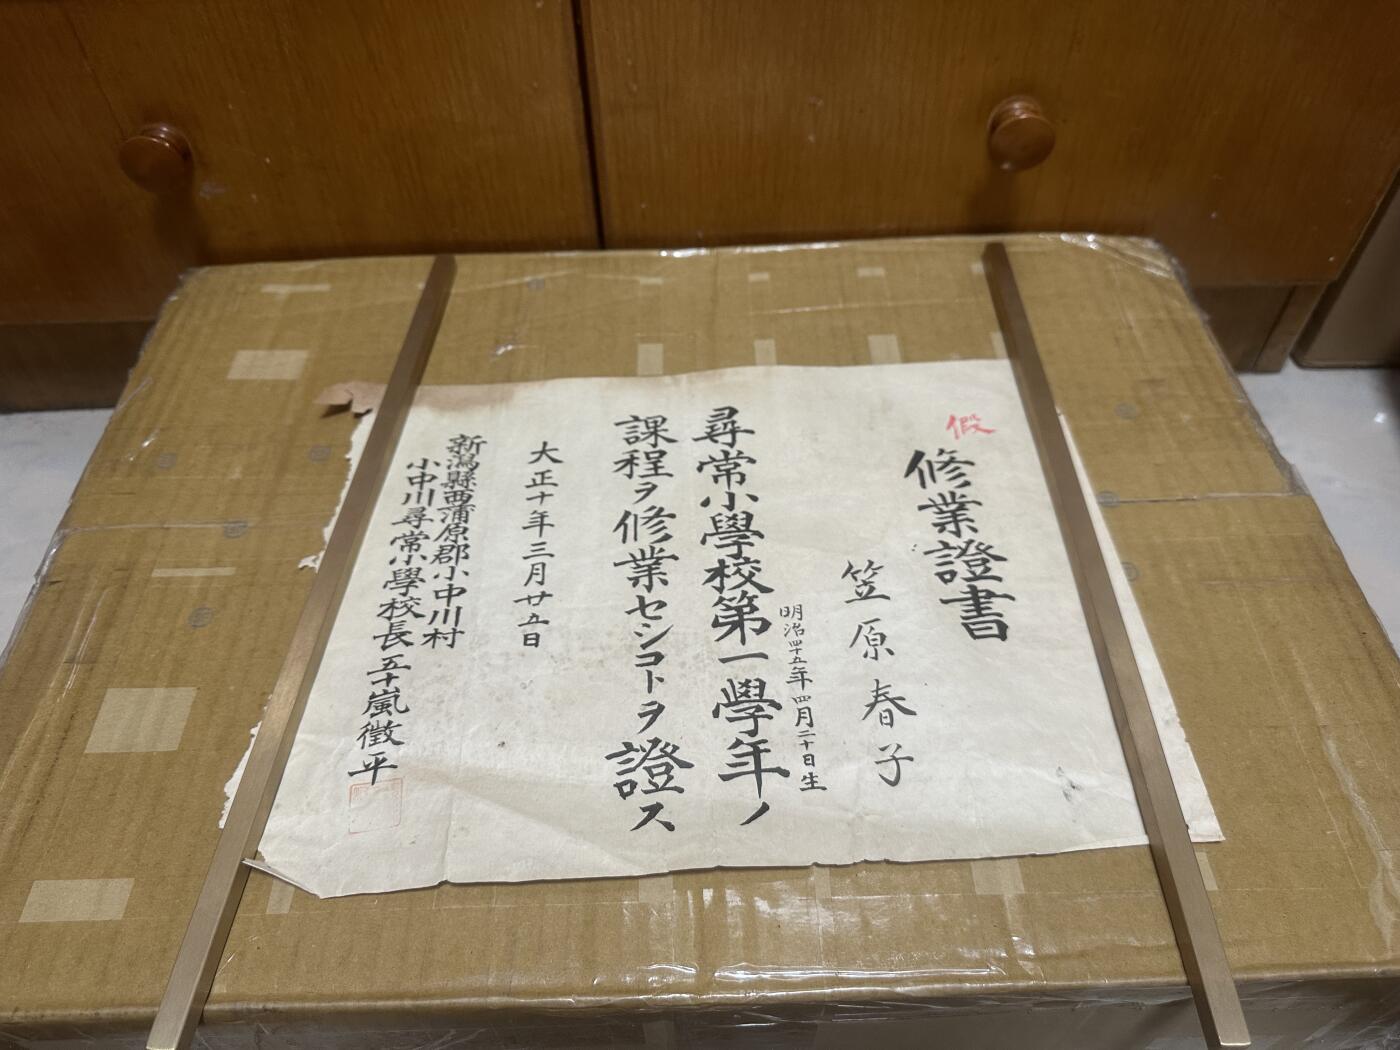 假
修業證書
笠原春子
明治四十五年四月二十日生
尋常小學校第一學年ノ
課程ヲ修業センコトヲ證ス
大正十年三月廿五日
新潟縣西蒲原郡小中川村
小中川尋常小學校長五十嵐徴平